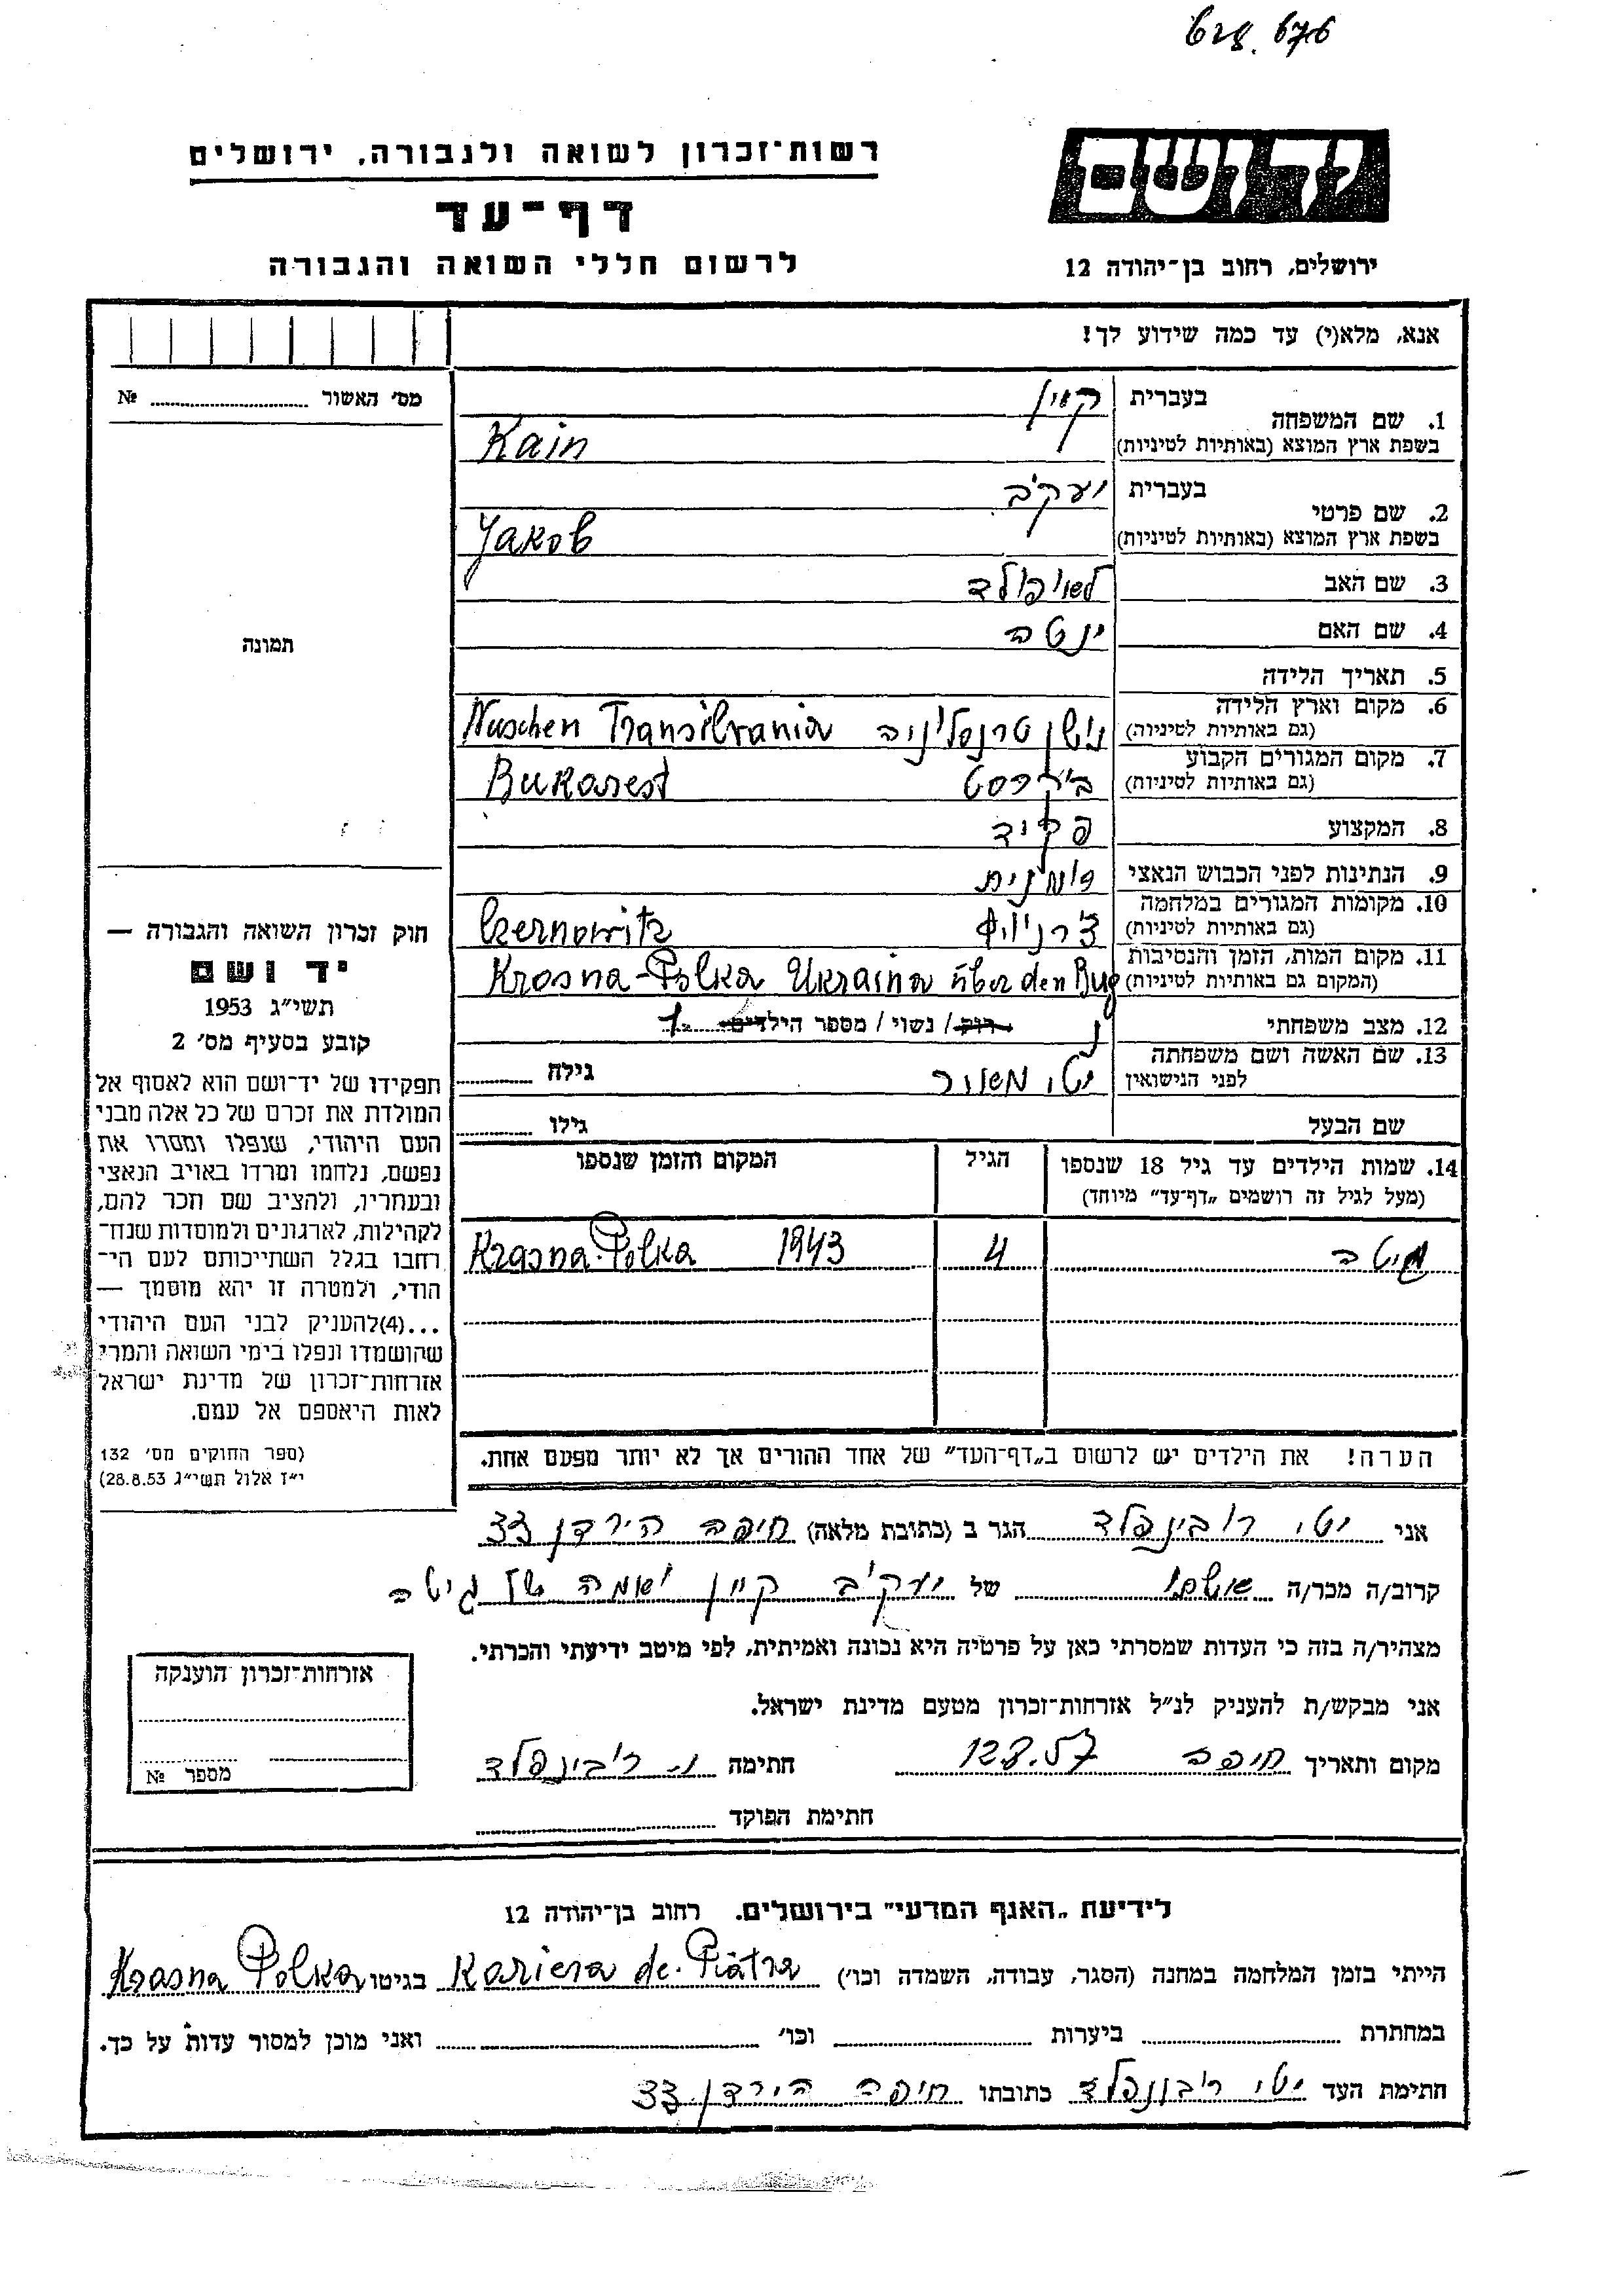 676
רשות־זכרון לשואה ולגבורה, ירושלים
דף־עד
לרשום חללי השואה והגבורה
יד ושם
ירושלים, רחוב בן־יהודה 12
אנא, מלא(י) עד כמה שידוע לך!
מס׳ האשור № ..........
1. שם המשפחה
בעברית קאין
בשפת ארץ המוצא (באותיות לטיניות) Kain
2. שם פרטי
בעברית יעקב
בשפת ארץ המוצא (באותיות לטיניות) Yakob
3. שם האב
4. שם האם יטה
5. תאריך הלידה
6. מקום וארץ הלידה
(גם באותיות לטיניות) Nuschen Transilvania
7. מקום המגורים הקבוע
(גם באותיות לטיניות) Bukarest
8. המקצוע פקיד
9. הנתינות לפני הכבוש הנאצי
10. מקומות המגורים במלחמה
(גם באותיות לטיניות) Czernowitz
11. מקום המות, הזמן והנסיבות
(המקום גם באותיות לטיניות) Krasna-Polka Ukraina über den Bug
12. מצב משפחתי רוק / נשוי / מספר הילדים 1
13. שם האשה ושם משפחתה
לפני הנישואין יטי גילה ..........
שם הבעל גילו ..........
14. שמות הילדים עד גיל 18 שנספו הגיל המקום והזמן שנספו
(מעל לגיל זה רושמים „דף־עד״ מיוחד)
גיטה 4 Krasna-Polka 1943
הערה! את הילדים יש לרשום ב„דף־העד״ של אחד ההורים אך לא יותר מפעם אחת.
תמונה
חוק זכרון השואה והגבורה —
יד ושם
תשי״ג 1953
קובע בסעיף מס׳ 2
תפקידו של יד־ושם הוא לאסוף אל
המולדת את זכרם של כל אלה מבני
העם היהודי, שנפלו ומסרו את
נפשם, נלחמו ומרדו באויב הנאצי
ובעוזריו, ולהציב שם וזכר להם,
לקהילות, לארגונים ולמוסדות שנח־
רחבו בגלל השתייכותם לעם הי־
הודי, ולמטרה זו יהא מוסמך —
...(4)להעניק לבני העם היהודי
שהושמדו ונפלו בימי השואה והמרי
אזרחות־זכרון של מדינת ישראל
לאות היאספם אל עמם.
(ספר החוקים מס׳ 132
י״ז אלול תשי״ג 28.8.53)
אני יטי רובינפלד הגר ב (כתובת מלאה) חיפה הירדן 33
קרוב/ה מכר/ה אשתו של יעקב קיין ואמה של גיטה
מצהיר/ה בזה כי העדות שמסרתי כאן על פרטיה היא נכונה ואמיתית, לפי מיטב ידיעתי והכרתי.
אני מבקש/ת להעניק לנ״ל אזרחות־זכרון מטעם מדינת ישראל.
מקום ותאריך חיפה חתימה י. רובינפלד
חתימת הפוקד ..........
אזרחות־זכרון הוענקה
מספר №
לידיעת „האגף המדעי״ בירושלים. רחוב בן־יהודה 12
הייתי בזמן המלחמה במחנה (הסגר, עבודה, השמדה וכו׳) Kariera de Piatra בגיטו Krasna Polka
במחתרת .......... ביערות .......... וכו׳ .......... ואני מוכן למסור עדות על כך.
חתימת העד יטי רובינפלד כתובתו חיפה הירדן 33